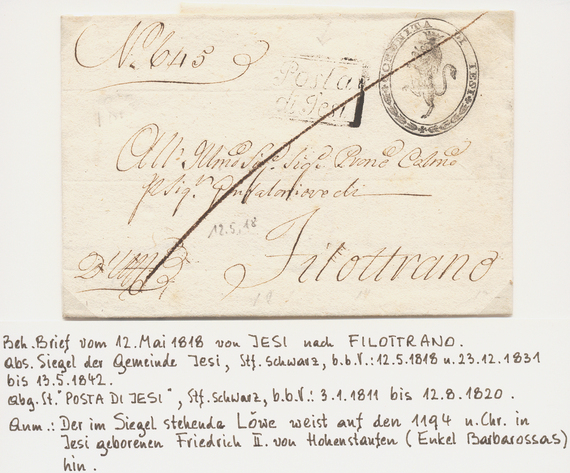 No 645
COMUNITA DI JESI
Posta
di Jesi
All'Illmo Sigr Sigr Prone Colmo
Il Sigr
12.5.18
D'Uffo
Filottrano
Beh. Brief vom 12. Mai 1818 von JESI nach FILOTTRANO.
Abs. Siegel der Gemeinde Jesi, Stf. schwarz, b.b.V.: 12.5.1818 u. 23.12.1831
bis 13.5.1842.
Abg. St. "POSTA DI JESI", Stf. schwarz, b.b.V.: 3.1.1811 bis 12.8.1820.
Anm.: Der im Siegel stehende Löwe weist auf den 1194 n. Chr. in
Jesi geborenen Friedrich II. von Hohenstaufen (Enkel Barbarossas)
hin.